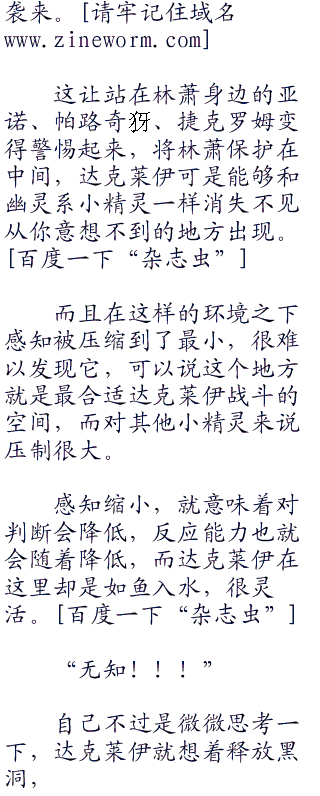 袭来。[请牢记住域名
www.zineworm.com]
这让站在林萧身边的亚
诺、帕路奇犽、捷克罗姆变
得警惕起来，将林萧保护在
中间，达克莱伊可是能够和
幽灵系小精灵一样消失不见
从你意想不到的地方出现。
[百度一下“杂志虫”]
而且在这样的环境之下
感知被压缩到了最小，很难
以发现它，可以说这个地方
就是最合适达克莱伊战斗的
空间，而对其他小精灵来说
压制很大。
感知缩小，就意味着对
判断会降低，反应能力也就
会随着降低，而达克莱伊在
这里却是如鱼入水，很灵
活。[百度一下“杂志虫”]
“无知！！！”
自己不过是微微思考一
下，达克莱伊就想着释放黑
洞，